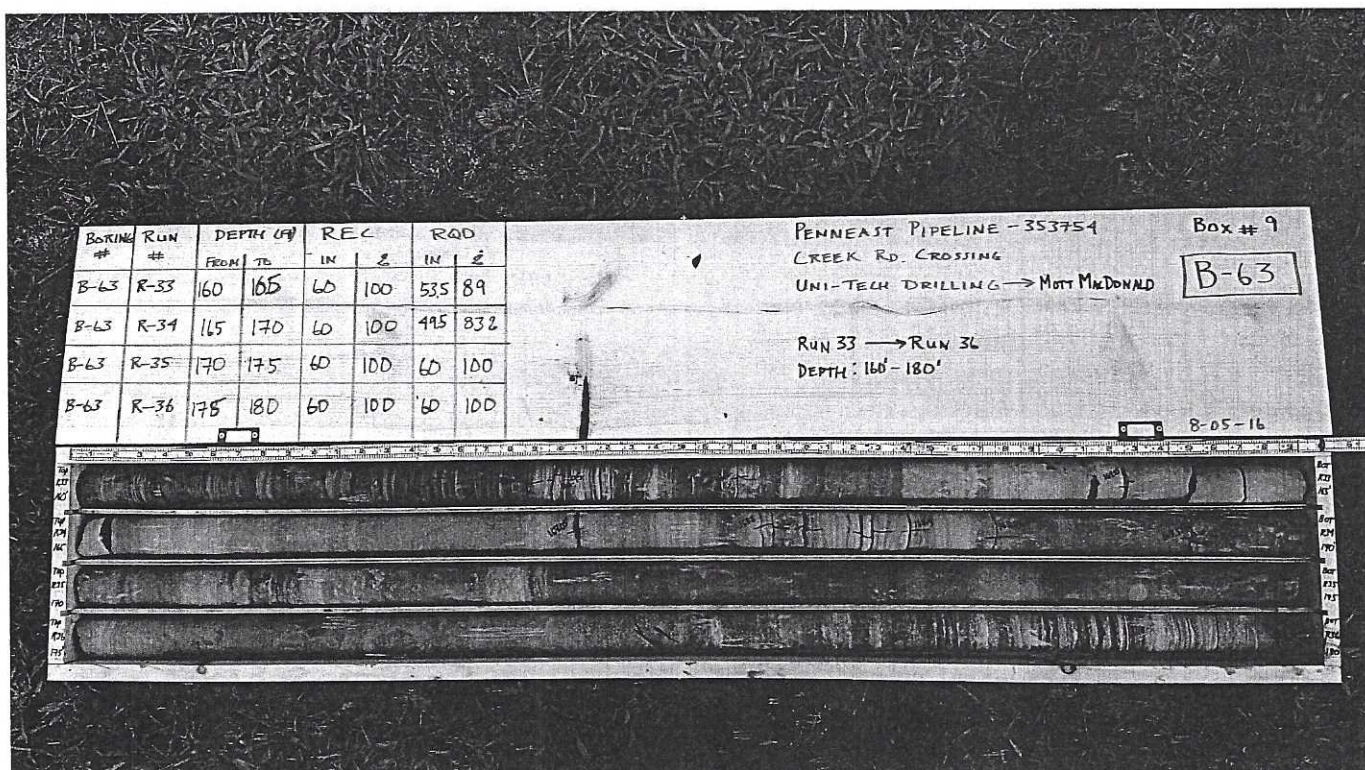 BORING # RUN # DEPTH (ft) REC RQD
FROM TO IN % IN %
B-63 R-33 160 165 60 100 53.5 89
B-63 R-34 165 170 60 100 49.5 83%
B-63 R-35 170 175 60 100 60 100
B-63 R-36 175 180 60 100 60 100
PENNEAST PIPELINE - 353754
CREEK RD. CROSSING
UNI-TECH DRILLING → MOTT MACDONALD
RUN 33 → RUN 36
DEPTH: 160' - 180'
BOX # 9
B-63
8-05-16
TOP
R33
160'
BOT
R33
165'
TOP
R34
165
BOT
R34
170'
TOP
R35
170
BOT
R35
175
TOP
R36
175'
BOT
R36
180